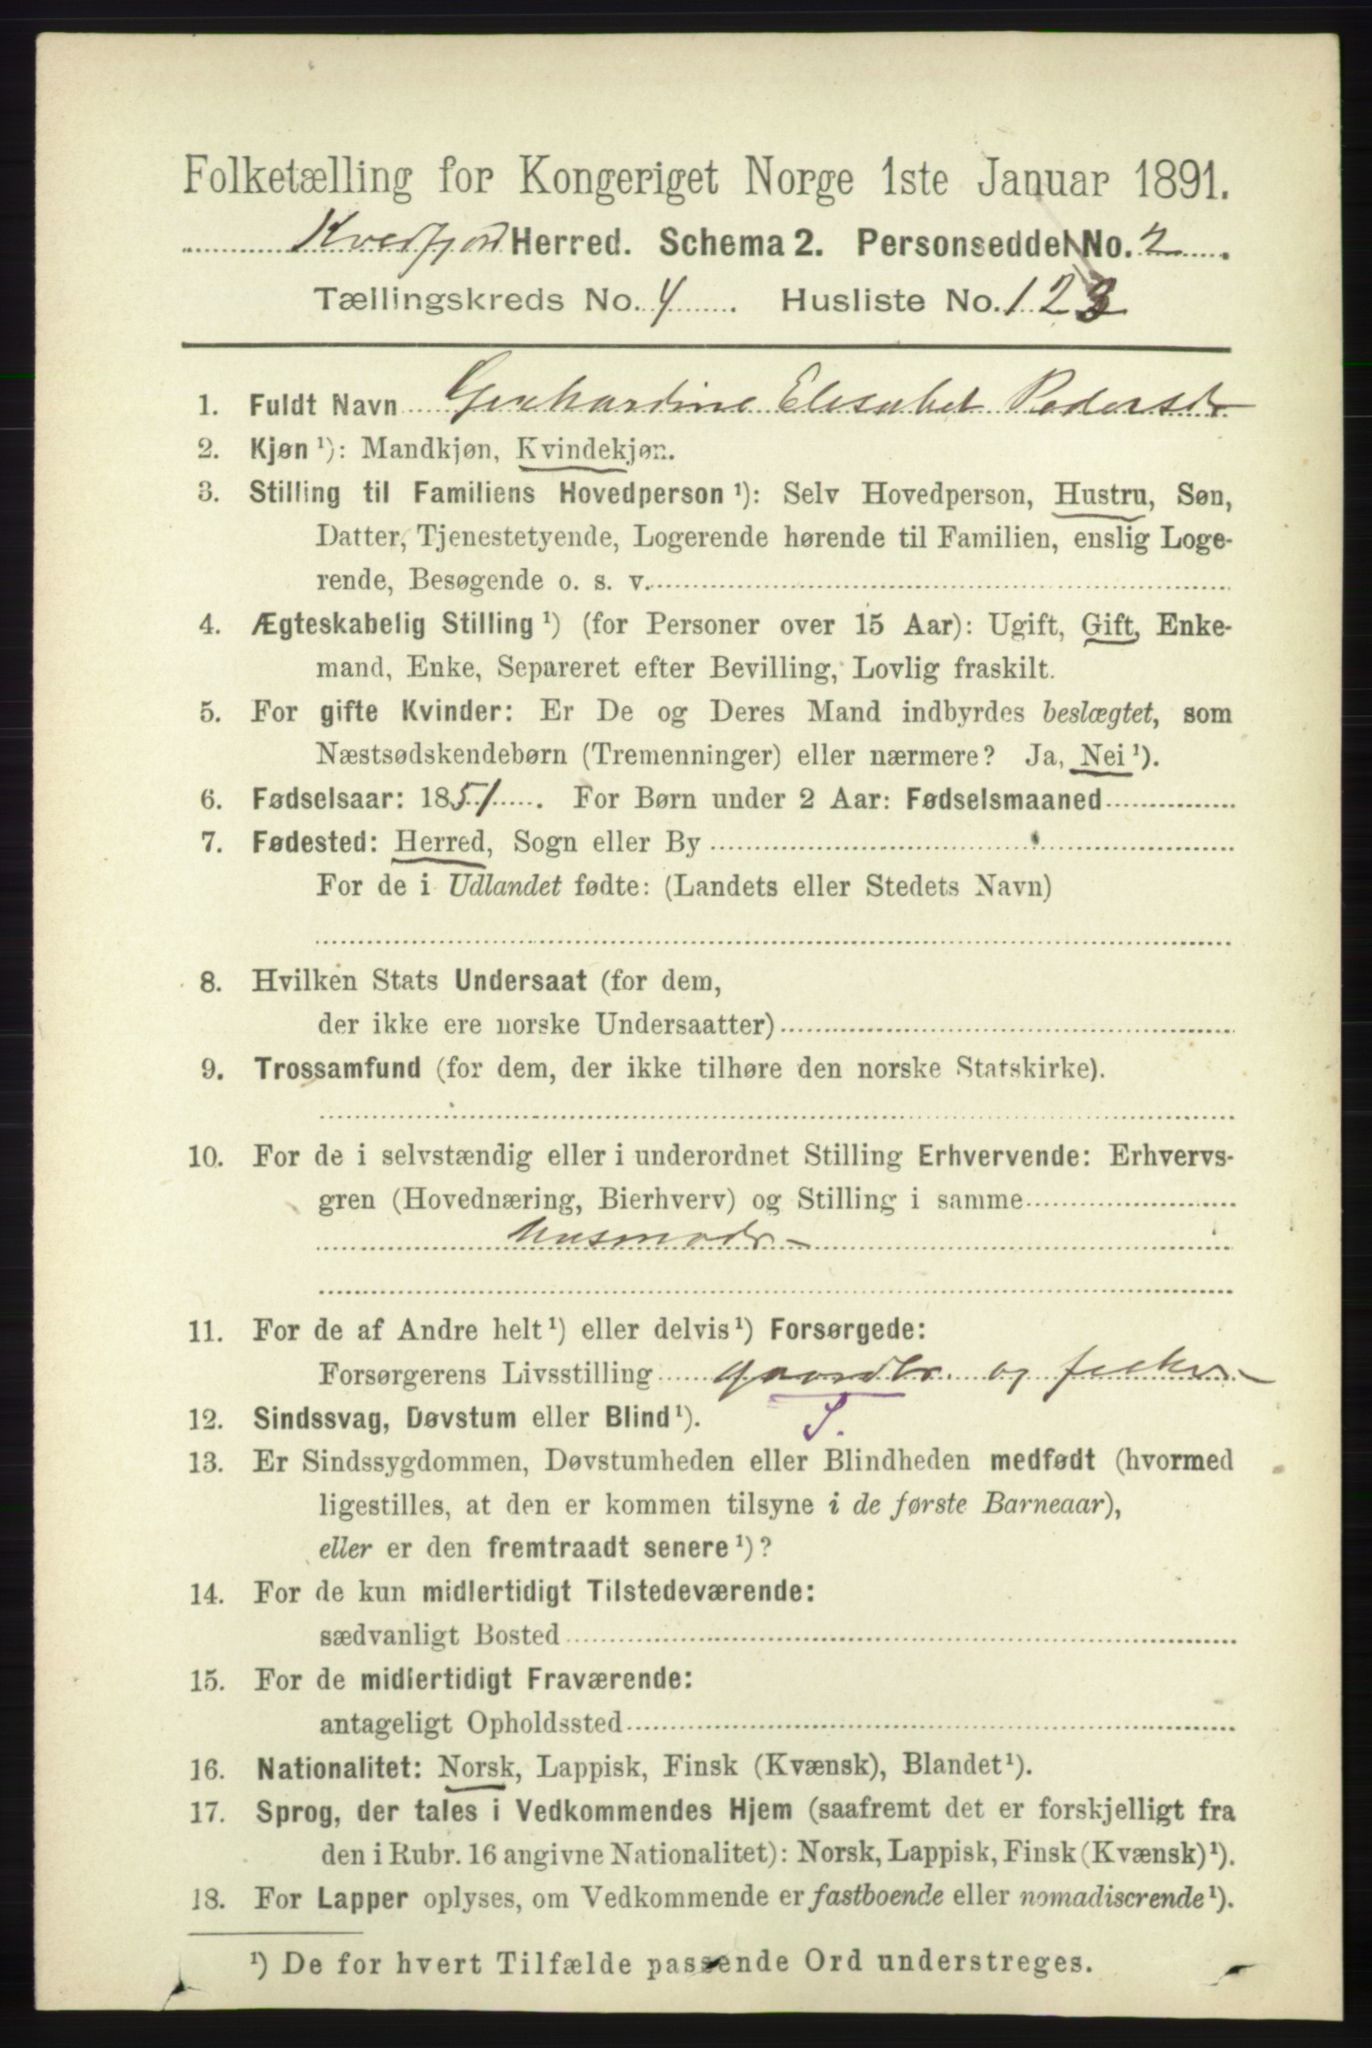 Folketælling for Kongeriget Norge 1ste Januar 1891.
Kvedfjord Herred. Schema 2. Personseddel No. 2.
Tællingskreds No. 4. Husliste No. 123
1. Fuldt Navn Gerhardine Elisabet Pedersdr
2. Kjøn ¹): Mandkjøn, Kvindekjøn.
3. Stilling til Familiens Hovedperson ¹): Selv Hovedperson, Hustru, Søn,
Datter, Tjenestetyende, Logerende hørende til Familien, enslig Loge-
rende, Besøgende o. s. v.
4. Ægteskabelig Stilling ¹) (for Personer over 15 Aar): Ugift, Gift, Enke-
mand, Enke, Separeret efter Bevilling, Lovlig fraskilt.
5. For gifte Kvinder: Er De og Deres Mand indbyrdes beslægtet, som
Næstsødskendebørn (Tremenninger) eller nærmere? Ja, Nei ¹).
6. Fødselsaar: 1851. For Børn under 2 Aar: Fødselsmaaned
7. Fødested: Herred, Sogn eller By
For de i Udlandet fødte: (Landets eller Stedets Navn)
8. Hvilken Stats Undersaat (for dem,
der ikke ere norske Undersaatter)
9. Trossamfund (for dem, der ikke tilhøre den norske Statskirke).
10. For de i selvstændig eller i underordnet Stilling Erhvervende: Erhvervs-
gren (Hovednæring, Bierhverv) og Stilling i samme
Husmodr
11. For de af Andre helt ¹) eller delvis ¹) Forsørgede:
Forsørgerens Livsstilling gaardbr. og fisker
12. Sindssvag, Døvstum eller Blind ¹). S.
13. Er Sindssygdommen, Døvstumheden eller Blindheden medfødt (hvormed
ligestilles, at den er kommen tilsyne i de første Barneaar),
eller er den fremtraadt senere ¹)?
14. For de kun midlertidigt Tilstedeværende:
sædvanligt Bosted
15. For de midlertidigt Fraværende:
antageligt Opholdssted
16. Nationalitet: Norsk, Lappisk, Finsk (Kvænsk), Blandet ¹).
17. Sprog, der tales i Vedkommendes Hjem (saafremt det er forskjelligt fra
den i Rubr. 16 angivne Nationalitet): Norsk, Lappisk, Finsk (Kvænsk) ¹).
18. For Lapper oplyses, om Vedkommende er fastboende eller nomadiserende ¹).
¹) De for hvert Tilfælde passende Ord understreges.